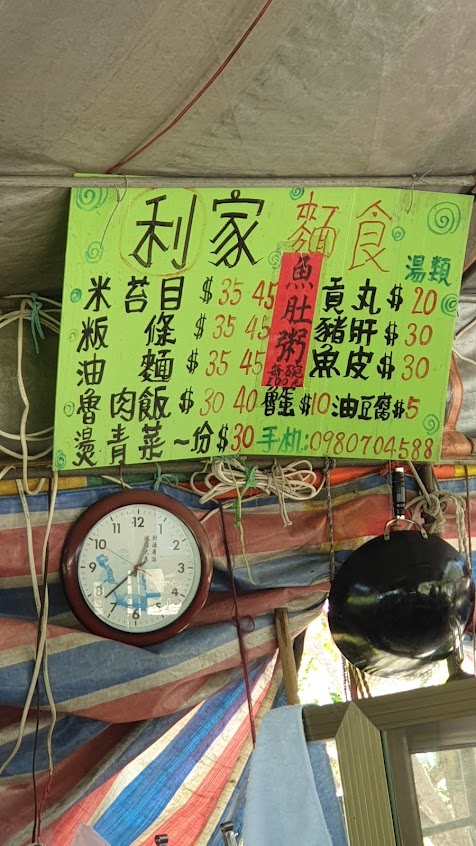 利家 麵食
湯類
米苔目 $35 45
粄條 $35 45
油麵 $35 45
魯肉飯 $30 40
燙青菜一份$30
魚肚粥
每碗
貢丸$20
豬肝$30
魚皮$30
魯蛋$10 油豆腐$5
手机:0980704588
12
1
2
3
4
5
6
7
8
9
10
11